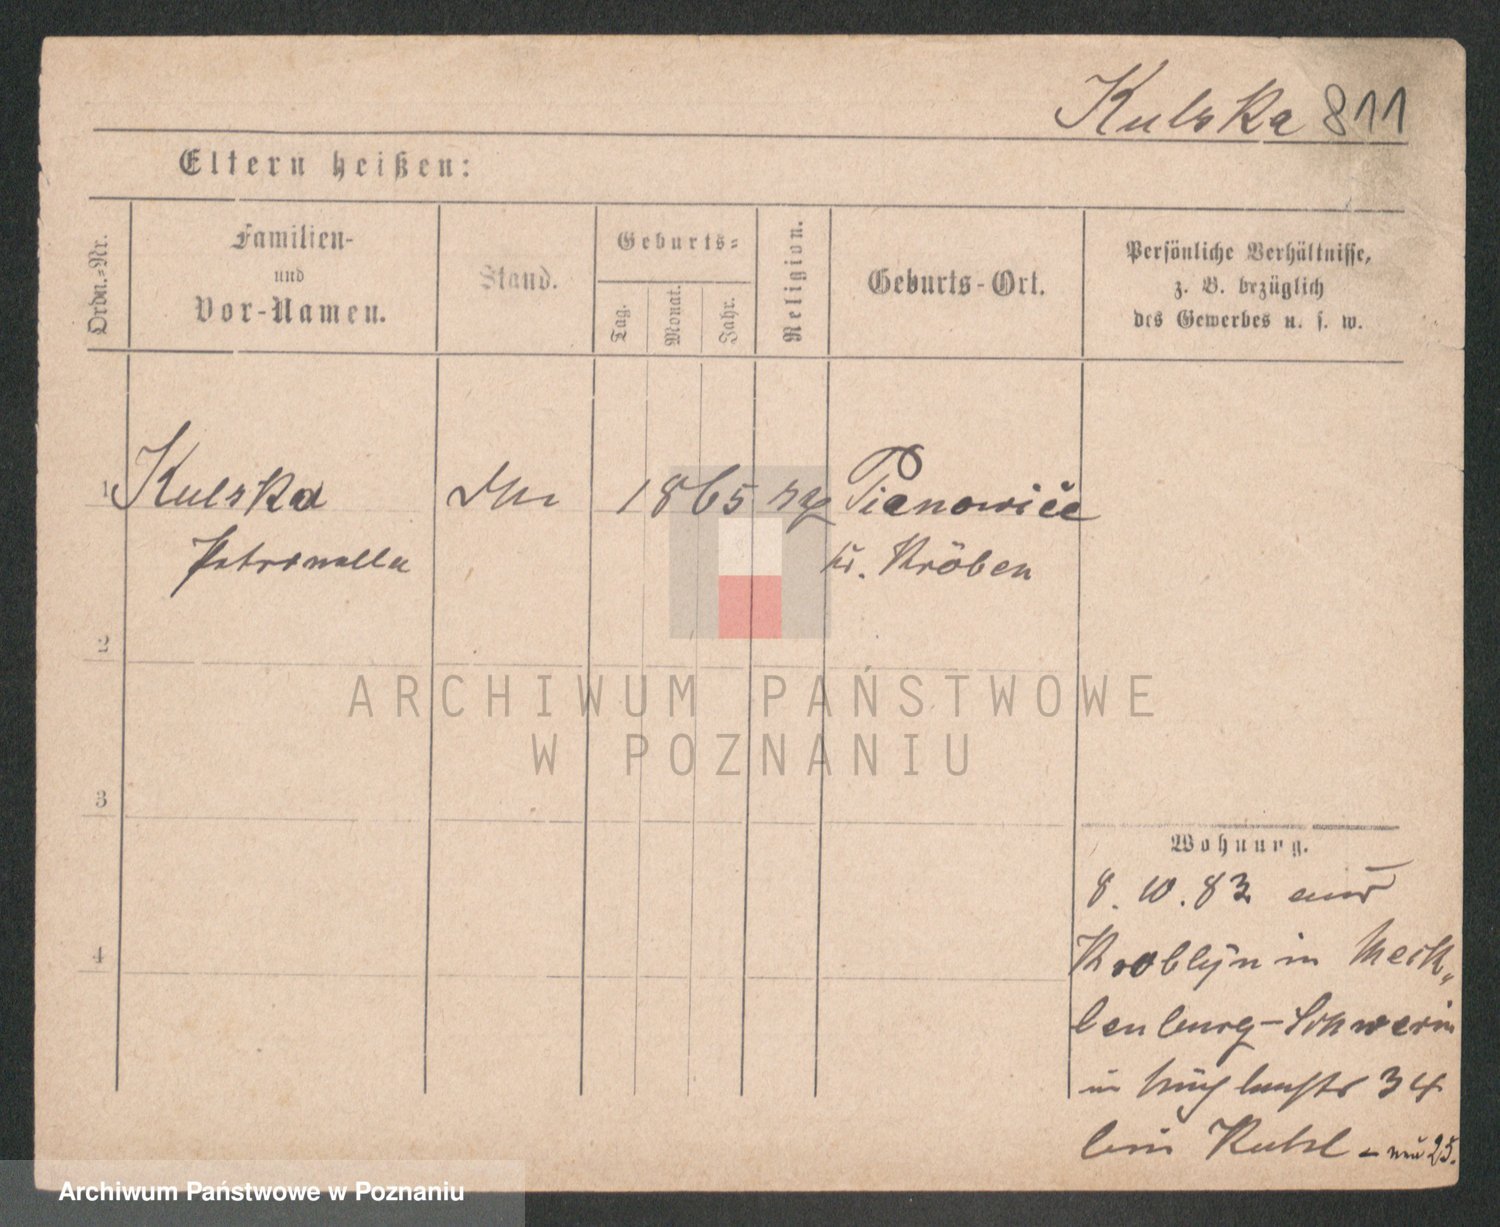 Kulska 811
Eltern heißen:
Ordn.-Nr.
Familien-
und
Vor-Namen.
Stand.
Geburts-
Tag.
Monat.
Jahr.
Religion.
Geburts-Ort.
Persönliche Verhältnisse,
z. B. bezüglich
des Gewerbes u. s. w.
1 Kulska 1865 Pianowice
Petronella Kr. Kröben
2
ARCHIWUM PAŃSTWOWE
W POZNANIU
3
Wohnung.
8. 10. 83 aus
Kroblyn in Meck„
lenburg-Schwerin
in 34
bei Kuhl – 25.
4
Archiwum Państwowe w Poznaniu